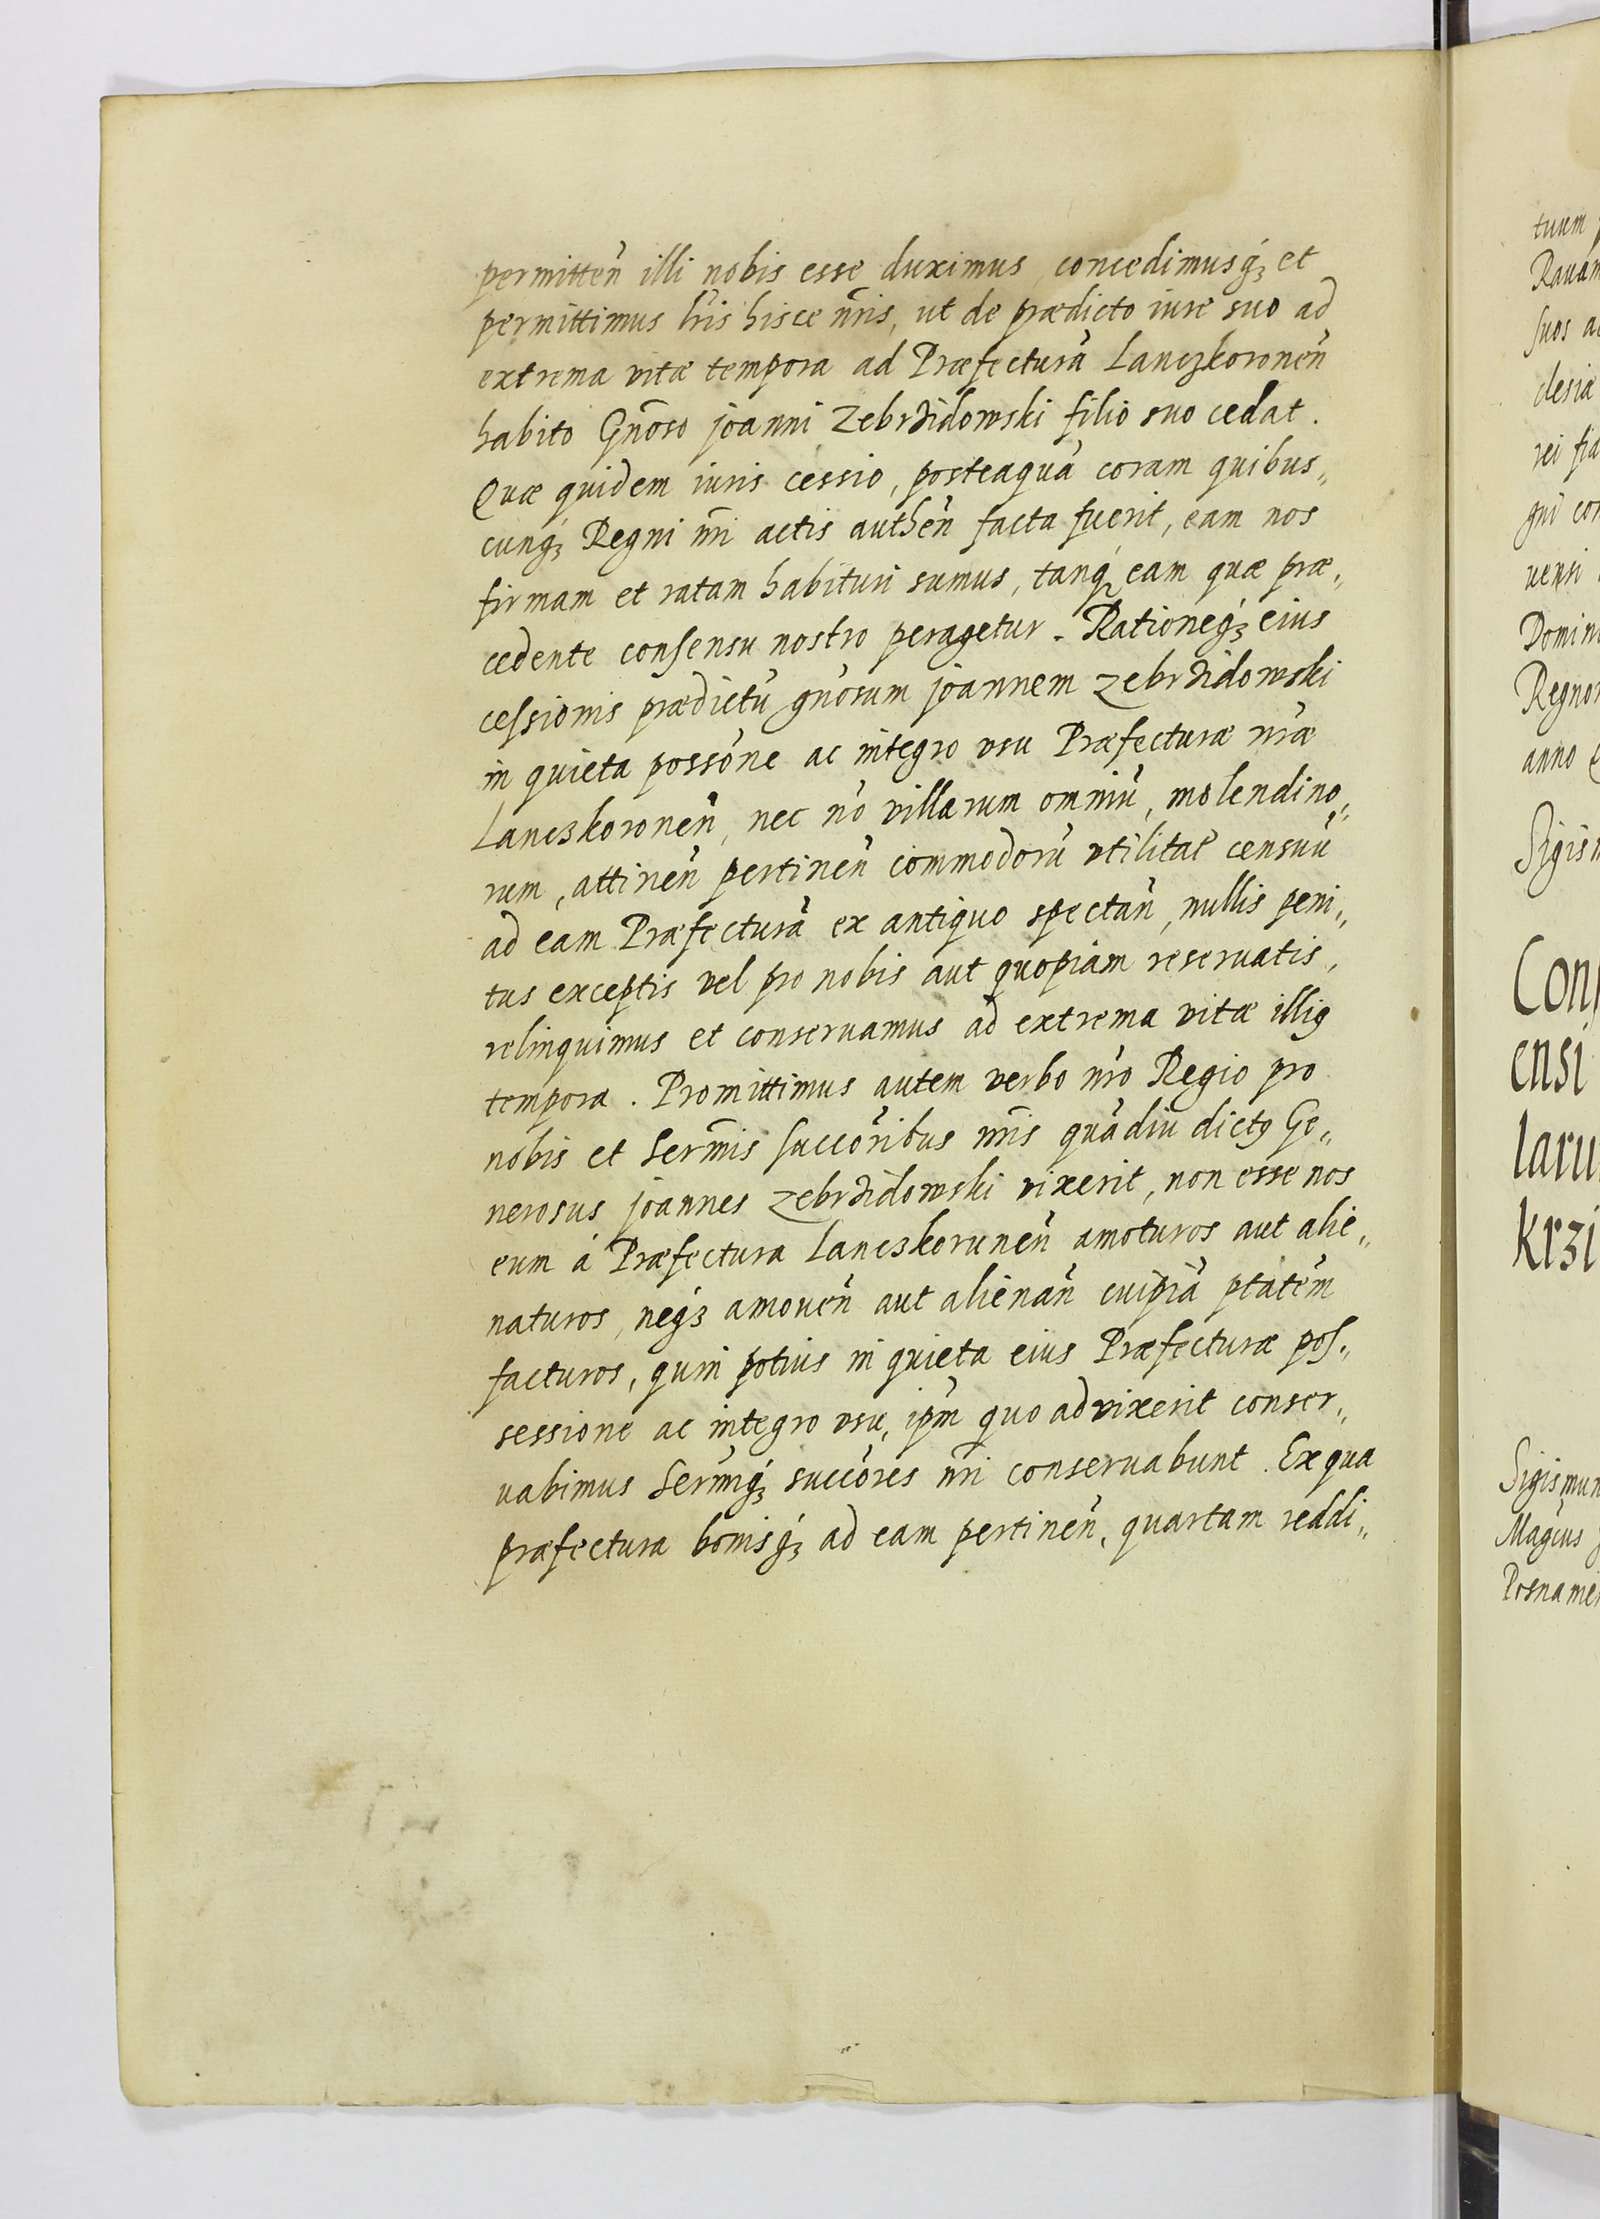 permitten̄ illi nobis esse duximus, concedimusq́ꝫ et
permittimus lr̄is hisce nr̄is, ut de prædicto iure suo ad
extrema vitæ tempora ad Præfecturā Lanczkoronen̄
habito Gn̄oso joanni Zebrzidowski filio suo cedat.
Quæ quidem iuris cessio, posteaquā coram quibus„
cunq́ꝫ Regni nr̄i actis authen̄ facta fuerit, eam nos
firmam et ratam habituri sumus, tanq́ eam quæ præ„
cedente consensu nostro peragetur. Rationeq́ꝫ eius
cessionis prædictū gn̄osum joannem Zebrzidowski
in quieta possōne ac integro vsu Præfecturæ nr̄æ
Lanczkoronen̄, nec nō villarum omniū, molendino„
rum, attinen̄ pertinen̄ commodorū vtilitat̄ censuū
ad eam Præfecturā ex antiquo spectan̄, nullis peni„
tus exceptis vel pro nobis aut quopiam reseruatis,
relinquimus et conseruamus ad extrema vitæ illiꝰ
tempora. Promittimus autem verbo nr̄o Regio pro
nobis et Serm̄is succōribus nr̄is quādiu dictꝰ Ge„
nerosus joannes Zebrzidowski vixerit, non esse nos
eum á Præfectura Lanczkorunen̄ amoturos aut alie„
naturos, neq́ꝫ amouen̄ aut alienan̄ cuipiā ptātem
facturos, quin potius in quieta eius Præfecturæ pos„
sessione ac integro vsu, ipm̄ quo ad vixerit conser„
uabimus Serm̄iq́ꝫ succōres nr̄i conseruabunt. Ex qua
præfectura bonisq́ꝫ ad eam pertinen̄, quartam reddi„
tuum
Rauam
suos
clesiæ
rei
uensi
Regnor
anno
Sigism
Cons
ensi
laru
krzi
Sigismun
Posnamen